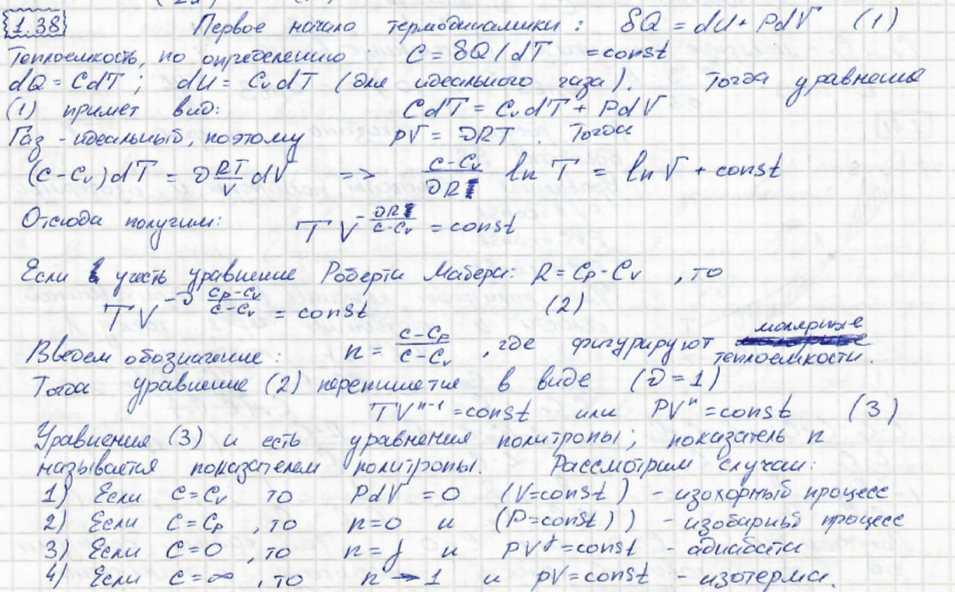 1.38 Первое начало термодинамики: δQ = dU + PdV (1)
Теплоемкость, по определению C = δQ/dT = const
dQ = CdT; dU = CvdT (для идеального газа). Тогда уравнение
(1) примет вид: CdT = CvdT + PdV
Газ - идеальный, поэтому pV = νRT. Тогда
(C-Cv)dT = ν RT/V dV => (C-Cv)/(νR) ln T = ln V + const
Отсюда получим: TV^(-νR/(C-Cv)) = const
Если учесть уравнение Роберта Майера: R = Cp - Cv, то
TV^(-ν (Cp-Cv)/(C-Cv)) = const (2)
Введем обозначение: n = (C-Cp)/(C-Cv), где фигурируют молярные теплоемкости.
Тогда уравнение (2) перепишется в виде (ν=1)
TV^(n-1) = const или PV^n = const (3)
Уравнения (3) и есть уравнения политропы; показатель n
называется показателем политропы. Рассмотрим случаи:
1) Если C=Cv то PdV = 0 (V=const) - изохорный процесс
2) Если C=Cp, то n=0 и (P=const)) - изобарный процесс
3) Если C=0, то n=γ и PV^γ=const - адиабата
4) Если C=∞, то n→1 и pV=const - изотерма.